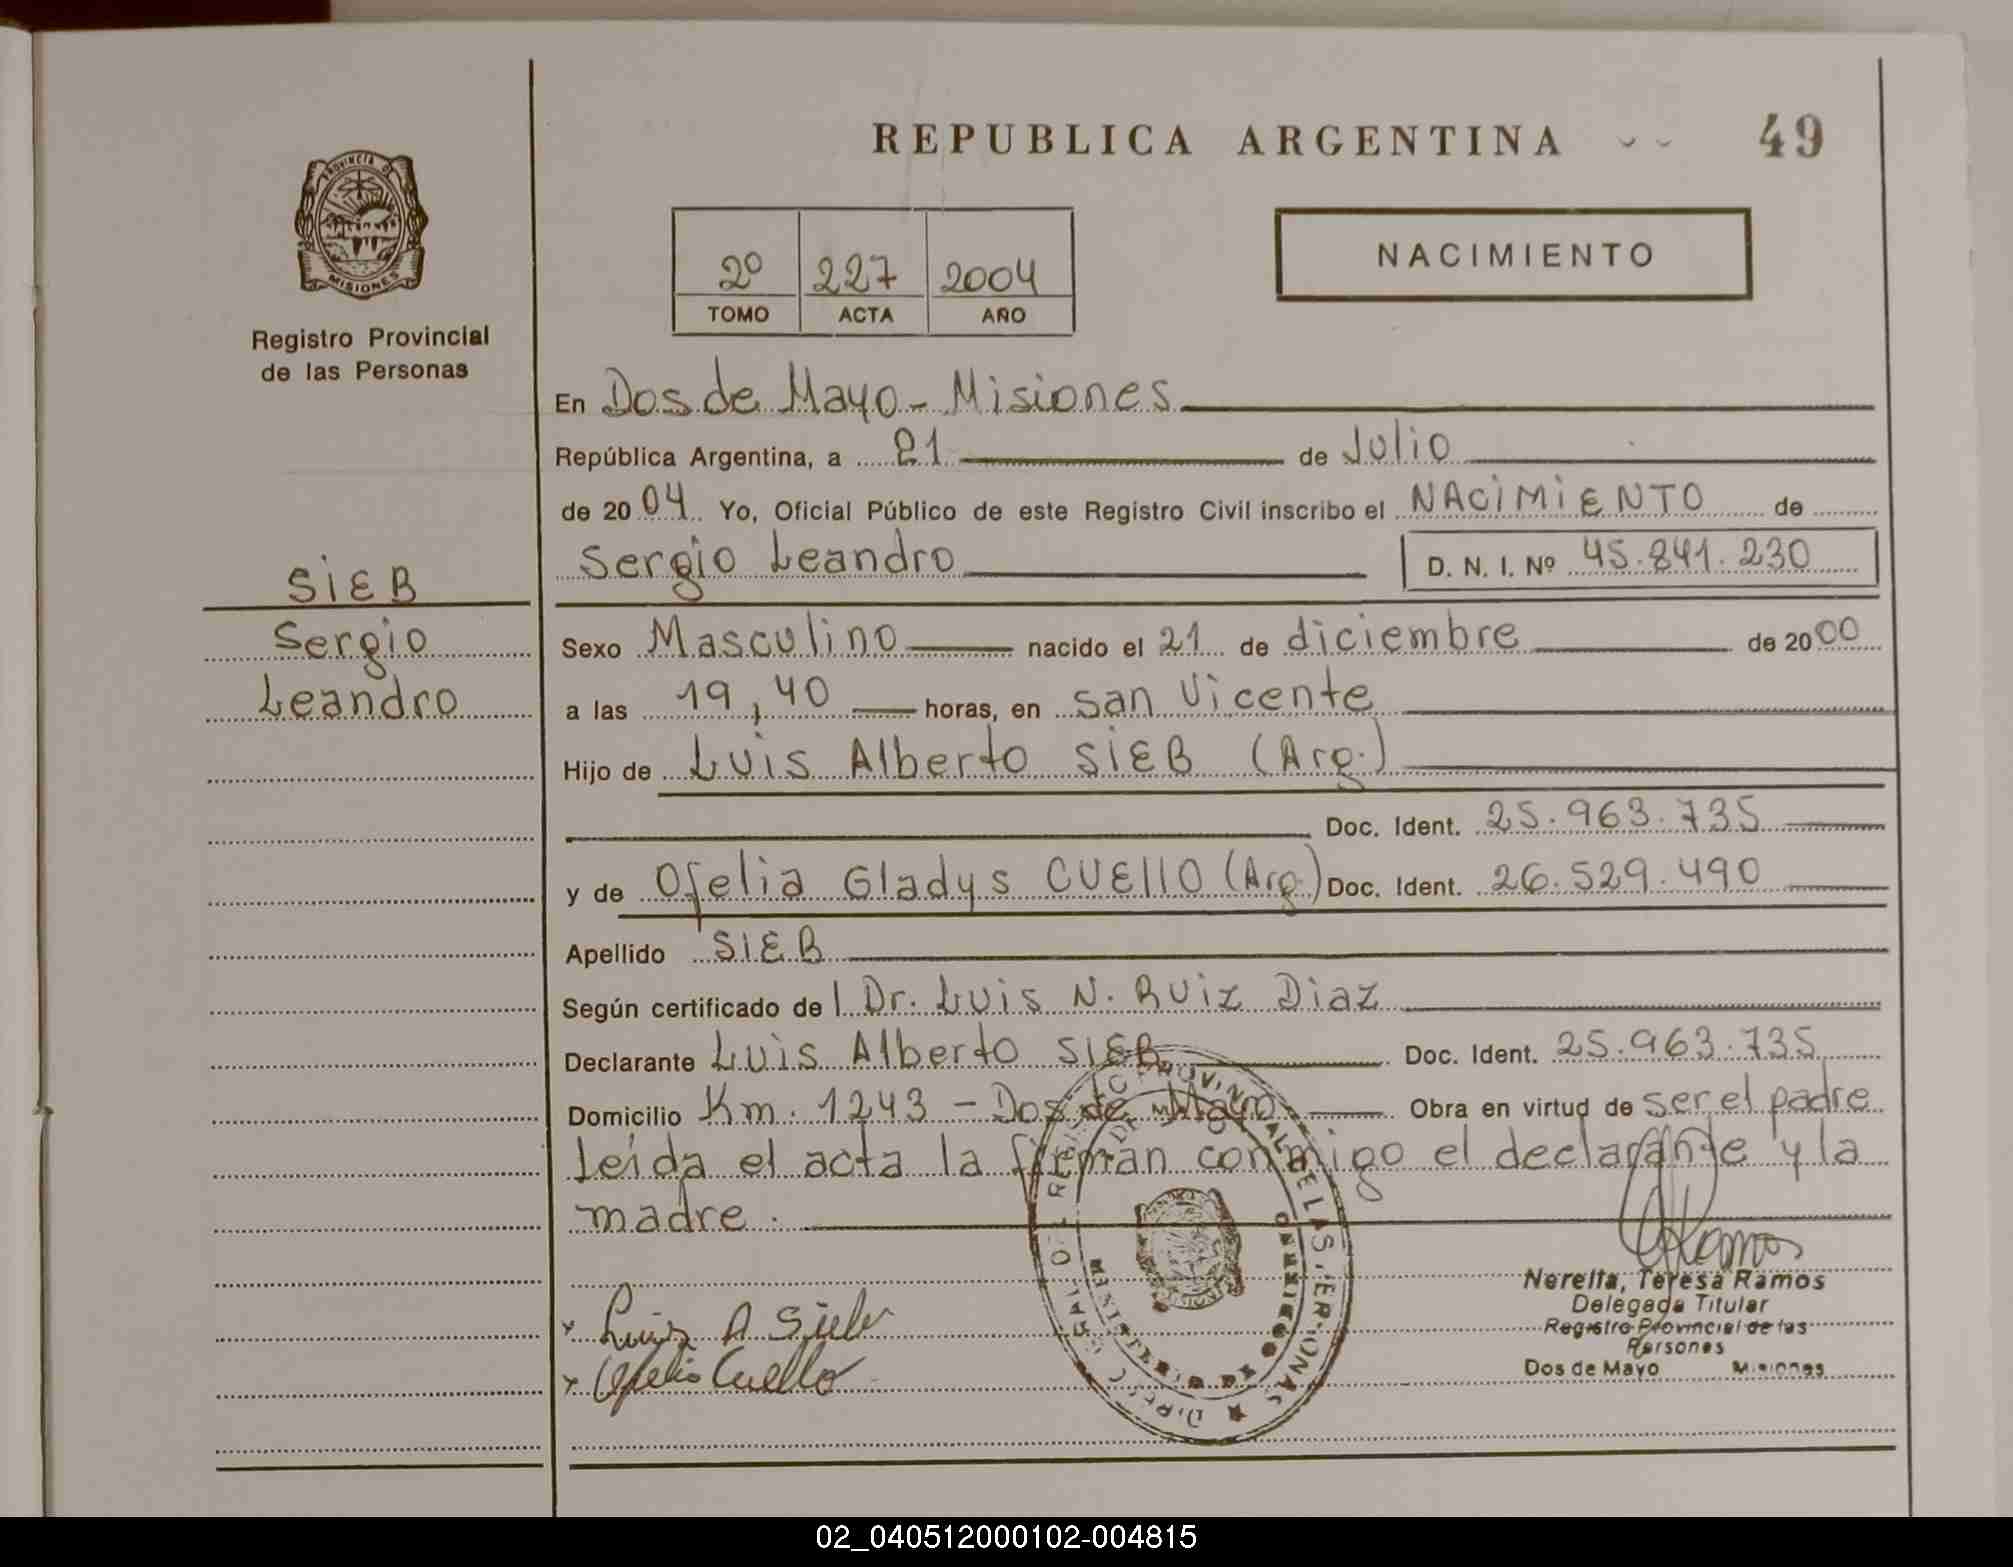 REPUBLICA ARGENTINA 49
PROVINCIA DE MISIONES
Registro Provincial
de las Personas
2º 227 2004
TOMO ACTA AÑO
NACIMIENTO
En Dos de Mayo - Misiones
República Argentina, a 21 de Julio
de 2004 Yo, Oficial Público de este Registro Civil inscribo el NACIMIENTO de
Sergio Leandro D. N. I. Nº 45.841.230
SIEB
Sergio
Leandro
Sexo Masculino nacido el 21 de diciembre de 2000
a las 19,40 horas, en San Vicente
Hijo de Luis Alberto SIEB (Arg.)
Doc. Ident. 25.963.735
y de Ofelia Gladys CUELLO (Arg.) Doc. Ident. 26.529.490
Apellido SIEB
Según certificado de l Dr. Luis N. Ruiz Diaz
Declarante Luis Alberto SIEB Doc. Ident. 25.963.735
Domicilio Km. 1243 - Dos de Mayo Obra en virtud de ser el padre
Leída el acta la firman conmigo el declarante y la
madre.
Luis A Sieb
Ofelia Cuello
Ramos
Nerelta, Teresa Ramos
Delegada Titular
Registro Provincial de las
Personas
Dos de Mayo Misiones
02_040512000102-004815